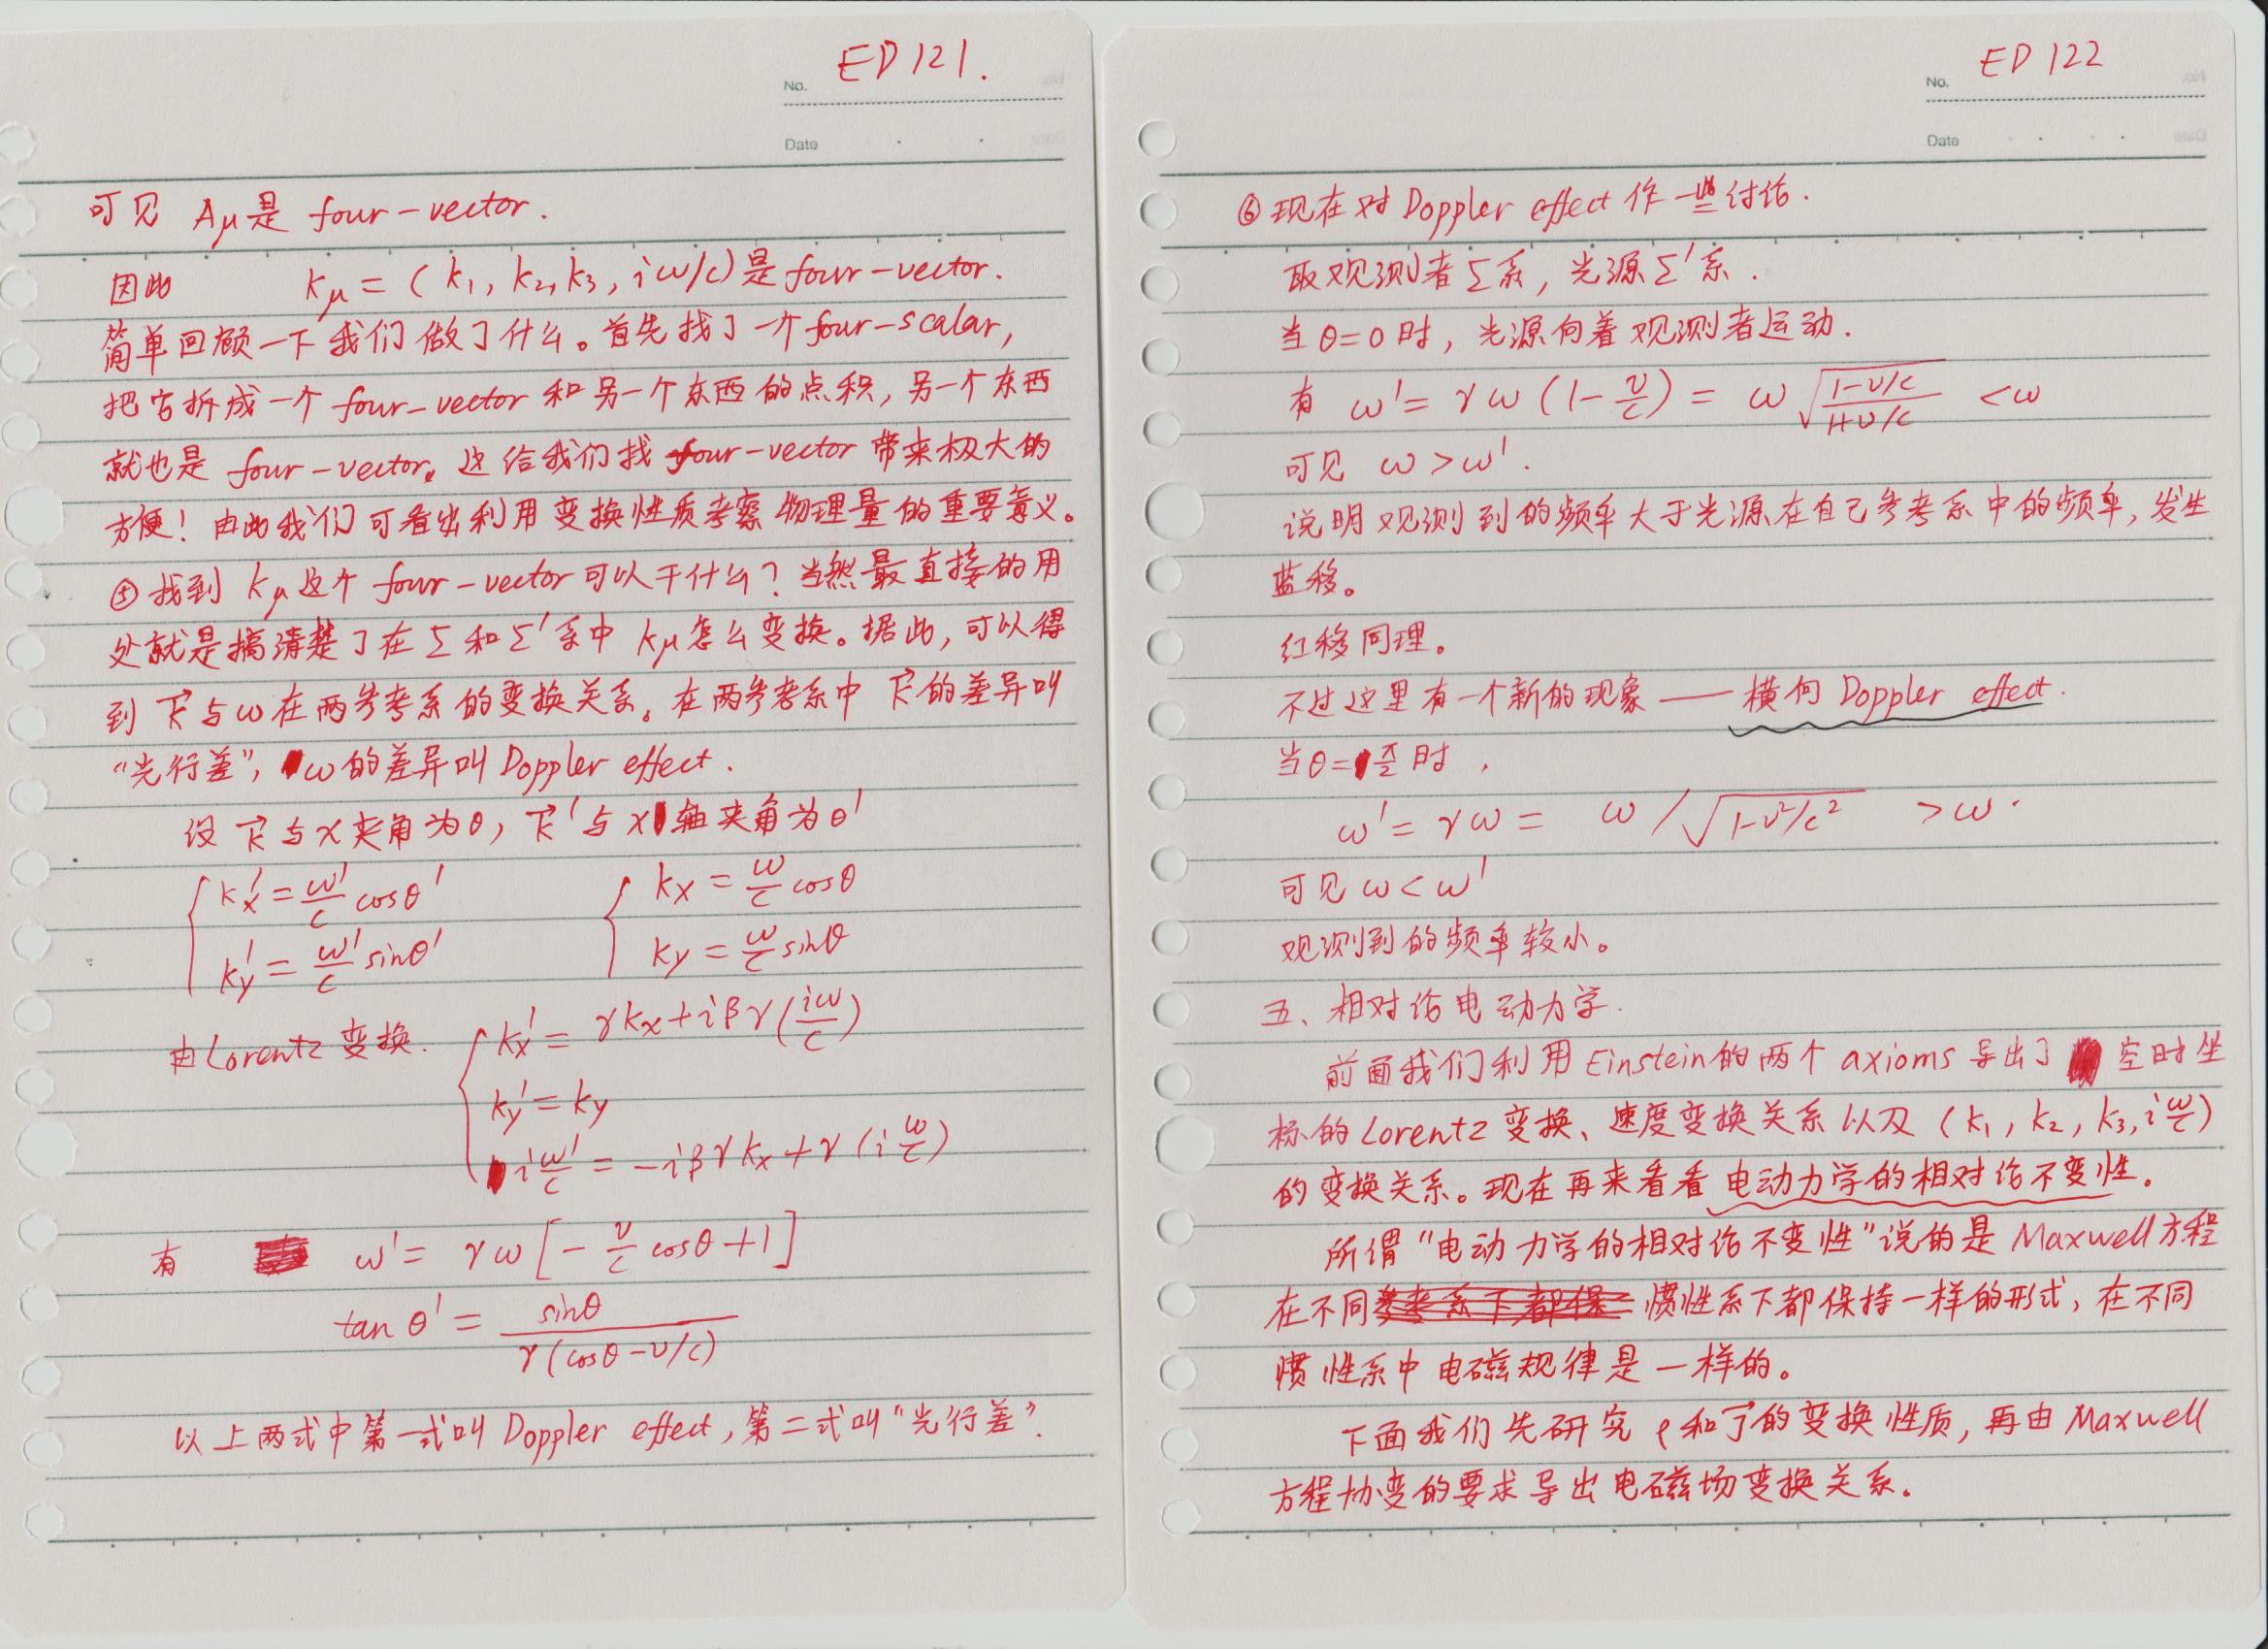 No. ED 121.
Date
可见 Aμ是 four-vector.
因此 kμ = (k₁, k₂, k₃, iω/c)是four-vector.
简单回顾一下我们做了什么。首先找了一个four-scalar,
把它拆成一个 four-vector 和另一个东西的点积, 另一个东西
就也是 four-vector。这给我们找four-vector 带来极大的
方便! 由此我们可看出利用变换性质考察物理量的重要意义。
⑤找到 kμ这个 four-vector可以干什么? 当然最直接的用
处就是搞清楚了在Σ和Σ'系中 kμ怎么变换。据此, 可以得
到 k⃗与ω在两参考系的变换关系。在两参考系中 k⃗的差异叫
“光行差”, ω的差异叫 Doppler effect.
设 k⃗与x夹角为θ, k⃗'与x轴夹角为θ'
{ kx' = ω'/c cosθ' { kx = ω/c cosθ
ky' = ω'/c sinθ' ky = ω/c sinθ
由Lorentz变换. { kx' = γkx+iβγ(iω/c)
ky' = ky
iω'/c = -iβγkx+γ(iω/c)
有 ω' = γω[-v/c cosθ+1]
tanθ' = sinθ / γ(cosθ-v/c)
以上两式中第一式叫 Doppler effect, 第二式叫“光行差”.
No. ED 122
Date
⑥现在对Doppler effect 作一些讨论.
取观测者Σ系, 光源Σ'系.
当θ=0时, 光源向着观测者运动.
有 ω' = γω(1-v/c) = ω√((1-v/c)/(1+v/c)) <ω
可见 ω>ω'.
说明观测到的频率大于光源在自己参考系中的频率, 发生
蓝移。
红移同理。
不过这里有一个新的现象——横向 Doppler effect.
当θ=π/2时,
ω' = γω = ω/√(1-v²/c²) >ω.
可见ω<ω'
观测到的频率较小。
五、相对论电动力学.
前面我们利用Einstein的两个axioms导出了空时坐
标的Lorentz变换、速度变换关系以及(k₁, k₂, k₃, iω/c)
的变换关系。现在再来看看电动力学的相对论不变性。
所谓“电动力学的相对论不变性”说的是Maxwell方程
在不同参考系下都保惯性系下都保持一样的形式, 在不同
惯性系中电磁规律是一样的。
下面我们先研究ρ和J⃗的变换性质, 再由Maxwell
方程协变的要求导出电磁场变换关系.